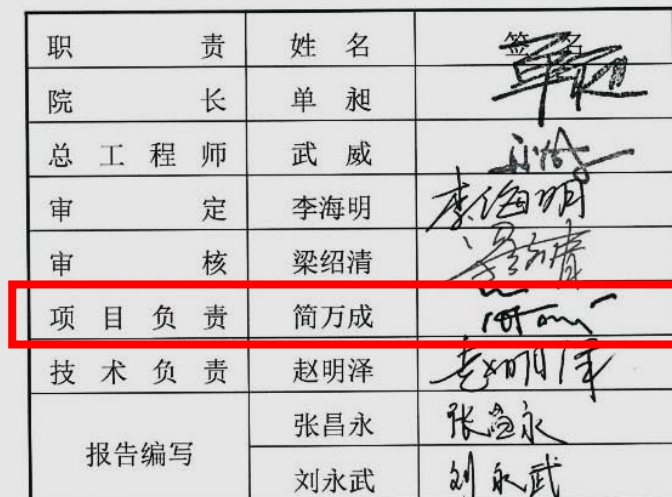 职责 姓名 签名
院长 单昶
总工程师 武威
审定 李海明 李海明
审核 梁绍清
项目负责 简万成
技术负责 赵明泽 赵明泽
报告编写 张昌永 张昌永
刘永武 刘永武